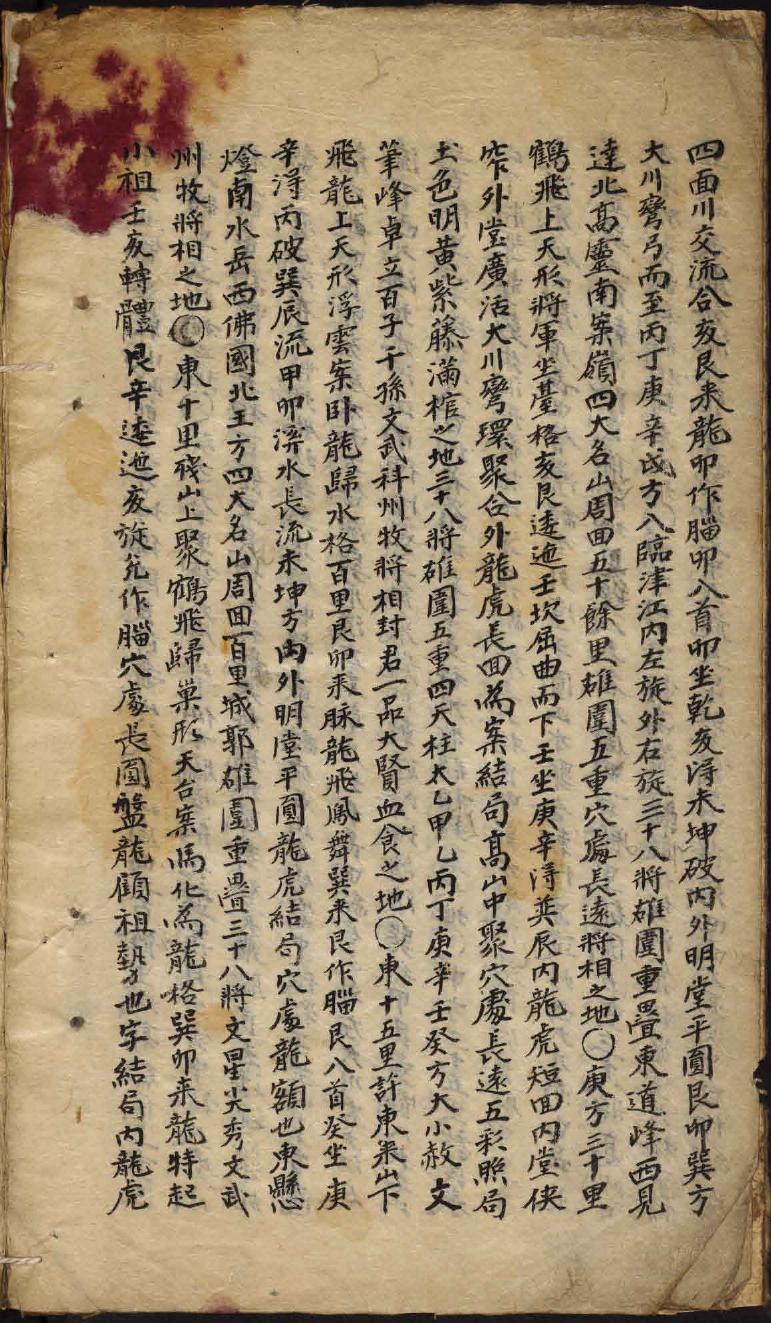 四面川交流合亥艮来龍卯作腦卯入首卯坐乾亥淂未坤破内外明堂平圓艮卯巽方
大川弯弓而至丙丁庚辛戌方入臨津江内左旋外右旋三十八將雄圍重疊東道峰西見
達北髙靈南案嶺四大名山周囬五十餘里雄圍五重穴處長遠將相之地〇庚方三十里
鶴飛上天形將軍坐臺格亥艮逶迤壬坎屈曲而下壬坐庚辛淂巽辰内龍虎短囬内堂侠
窄外堂廣活大川弯環聚合外龍虎長囬為案結局髙山中聚穴處長遠五彩照局
土色明黄紫藤滿棺之地三十八將雄圍五重四天柱太乙甲乙丙丁庚辛壬癸方大小赦文
筆峰卓立百子千孫文武科州牧將相封君一品大賢血食之地〇東十五里許東来山下
飛龍上天形浮雲案卧龍歸水格百里艮卯来脉龍飛鳳舞巽来艮作腦艮入首癸坐庚
辛淂丙破巽辰流甲卯濟水長流未坤方内外明堂平圓龍虎結局穴處龍額也東懸
燈南水岳西佛國北王方四大名山周囬百里城郭雄圍重疊三十八將文星尖秀文武
州牧將相之地〇東十里殘山上聚鶴飛歸巢形天台案馬化為龍格巽卯来龍特起
小祖壬亥轉體艮辛逶迤亥旋兊作腦穴處長圓盤龍顧祖勢也字結局内龍虎